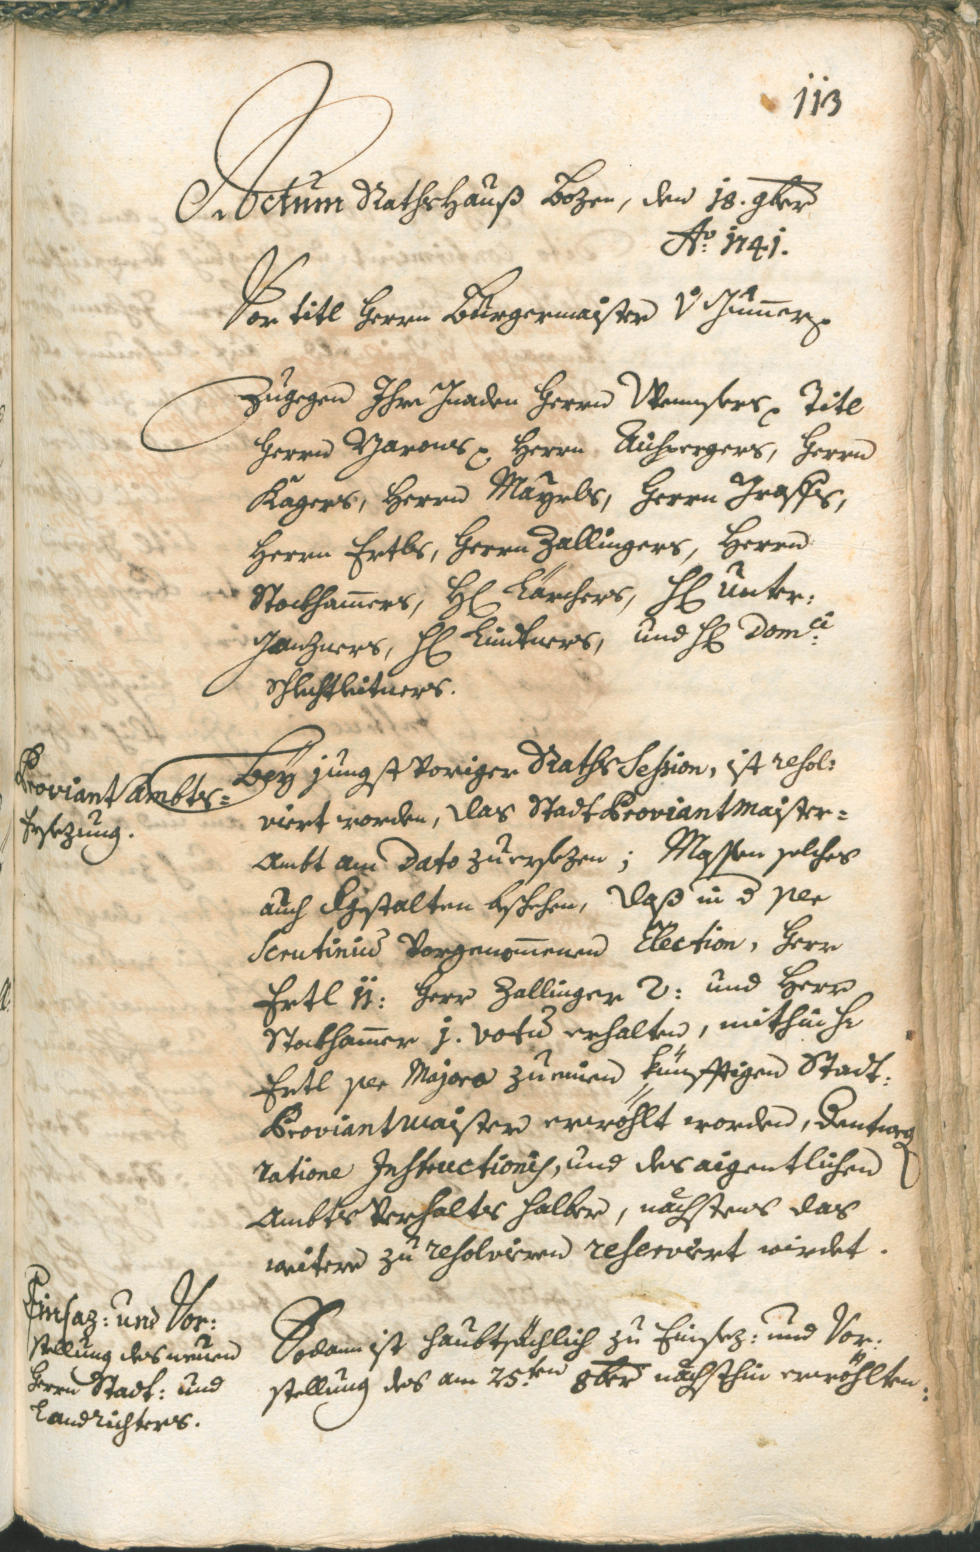 113
Actum Rathshauß Bozen, den 18. 9ber
Ao: 1741.
Vor titl Herrn Bürgermaister v
Zugegen Ihro Gnaden Herrn Wenser, Titl
Herrn Barons, Herrn Aufpergers, Herrn
Kägers, Herrn Mayrls, Herrn Graffs,
Herrn Ertls, Herrn Zallingers, Herrn
Stockhamers, H: Lärchers, H: Unter-
ganzners, H: Lindtners, und H: Domci:
Schlechtleitners.
Proviant Ambts=
Ersezung.
Bey jungst Voriger Raths Session, ist resol:
viert worden, das Stadt Proviantmaister=
Ambt am Dato zu ersezen; Massen solches
auch dergestalten beschehen, daß in d per
Scrutiniu vorgenommenen Election, Herr
Ertl 11: Herr Zallinger 2: und Herr
Stockhamer 1. Votu erhalten, mithin H:
Ertl per Majora zu einen künfftigen Stadt:
Proviantmaister erwöhlt worden, dentweg
ratione Instructionis, und des aigentlichen
Ambts Verhalts halber, nächstens das
weitere zu resolvieren reserviert wirdet.
Einsaz: und Vor:
stellung des neuen
Herrn Stadt: und
Landrichters.
Sodann ist haubtsächlich zu Einsez: und Vor:
stellung des am 25.ten 8ber nächsthin erwöhlten: